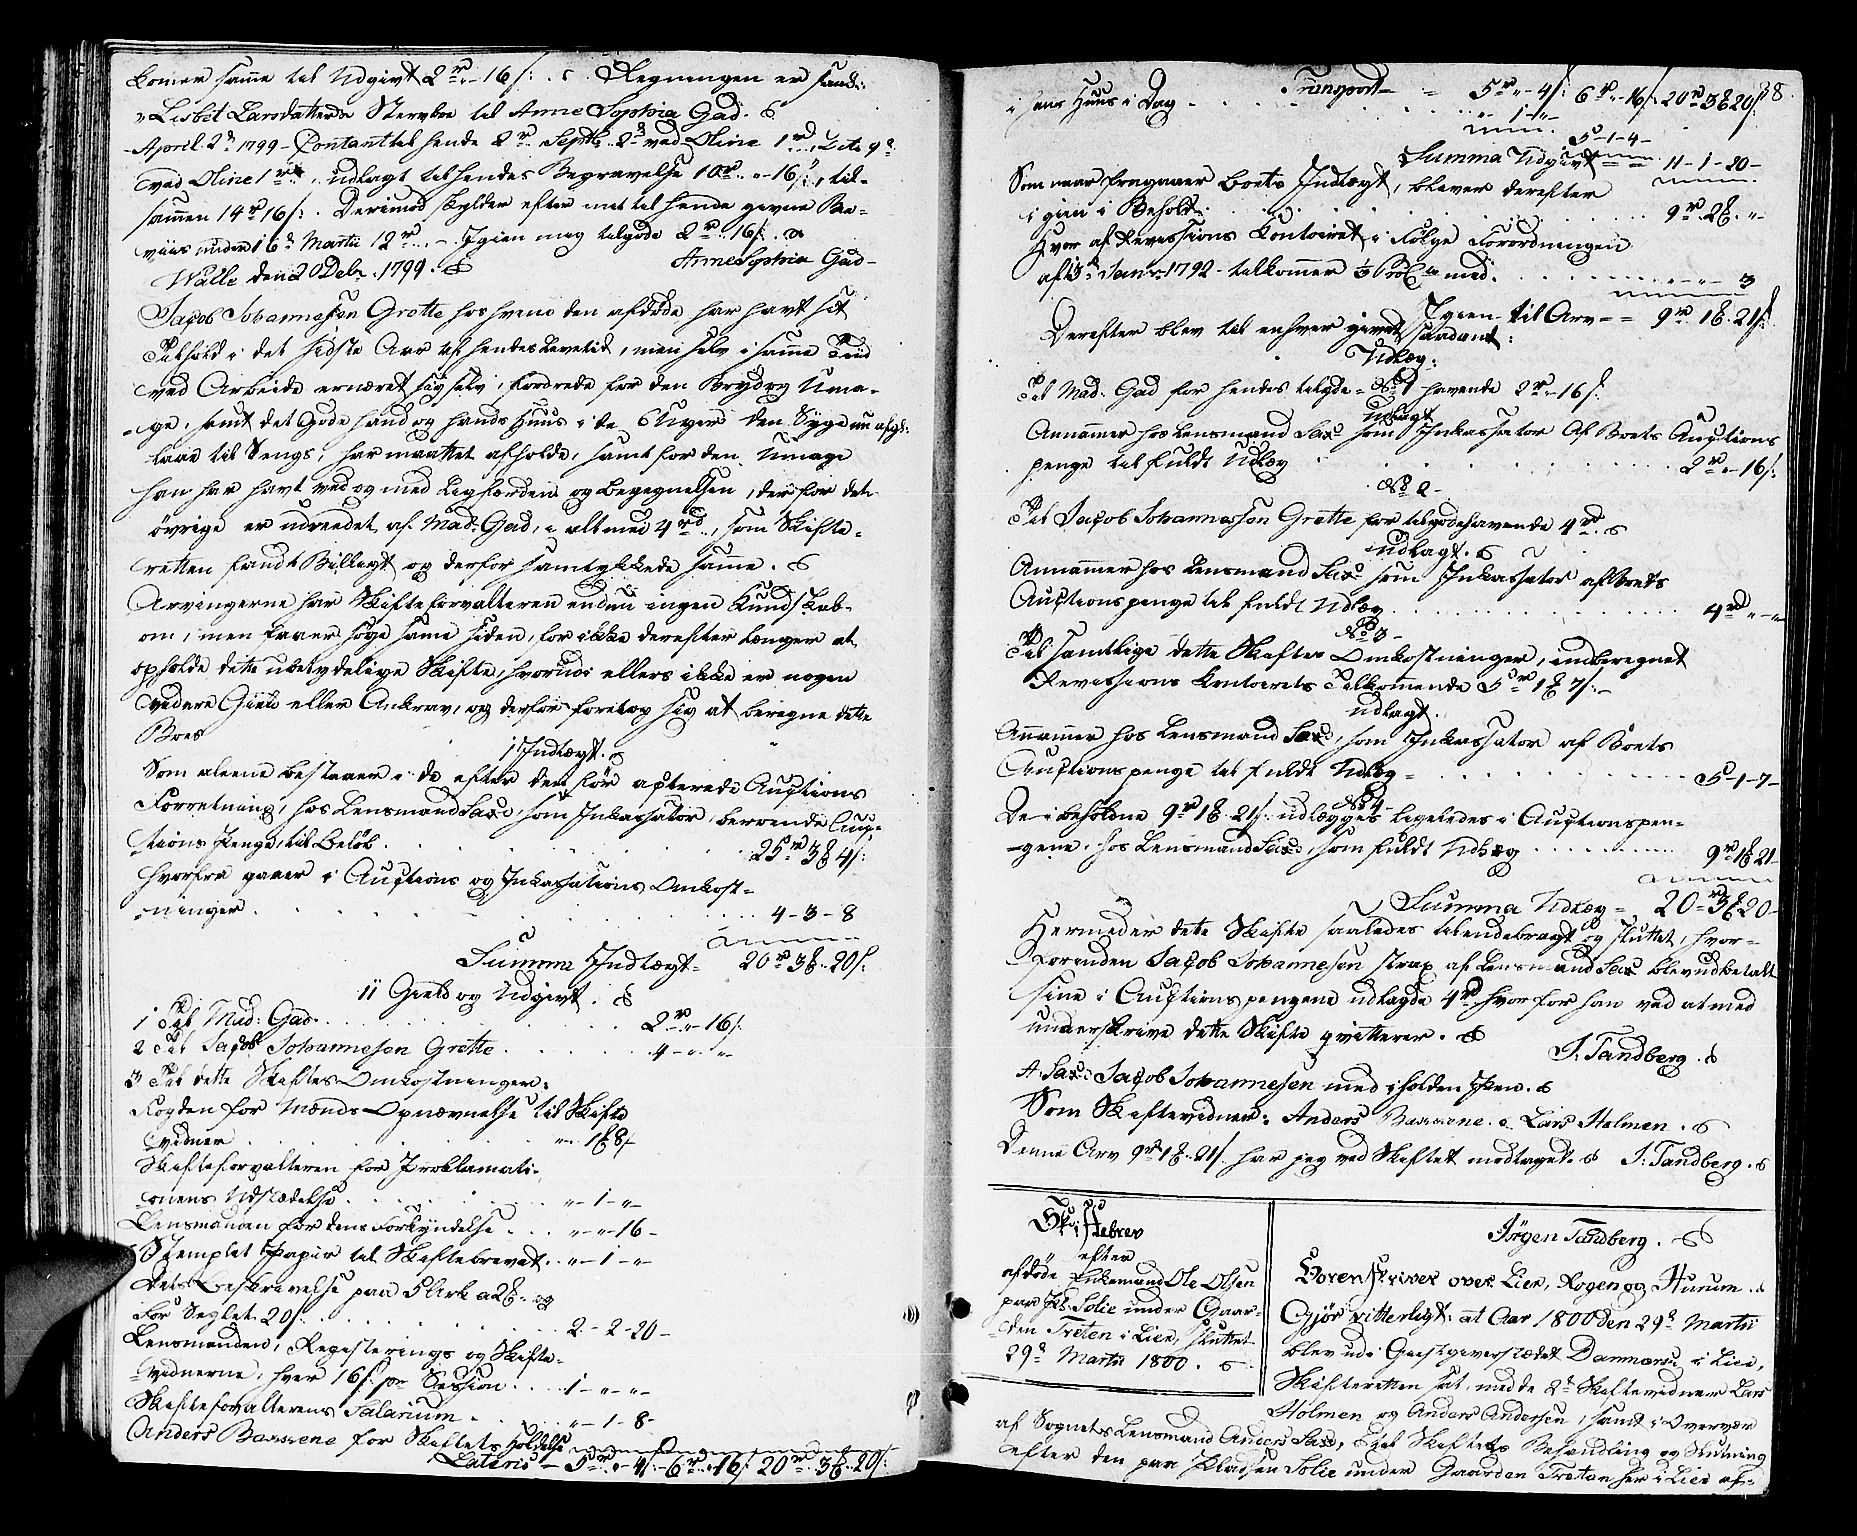 komer samme til Udgivt 2rd " 16s: s Regningen er saad:
"Lisbet Larsdatters Sterbboe til Anne Sophia Gad.
April 2d 1799 - Contant til hende 2rd Septb. 2d ved Oline 1rd, Dito 9d
ved Oline 1rd, udlagt til hendes Begravelse 10rd " 16s, til-
sammen 14rd 16s: Derimod skylder efter met til hende givne Be-
viis under 16d Martii 12rd. - Igien mig tilgode 2rd 16s.
Anne Sophia Gad -
Walle den 20 Debr. 1799.
Jacob Johannesen Grette hos hvem den afdøde har havt sit
Tilhold i det sidste Aar af hendes Levetid, men selv i samme Tiid
ved Arbeide ernæret sig selv, fordrede for den Bryd og Uma-
ge, samt det Gode hand og hands Huus i de 6 Uger den Syge nu afgl:
laae til Sengs, har maattet afholde, samt for den Umage
han har havt ved og med Ligfærden og Begegnelsen, der for det
øvrige er udreedet af Mad: Gad, i alt med 4rd, som Skifte-
retten fandt Billigt og derfor samtykkede samme.
Arvingerne har Skifteforvalteren endnu ingen Kundskab
om, men faaer søge same siden, for ikke derefter længer at
opholde dette ubetydelige Skifte, hvorudi ellers ikke er nogen
videre Gield eller Ankrav, og derfor foretog sig at beregne dette
Boes
i Indtægt.
Som alene bestaaer i de efter den før afterede Auctions
Forretning, hos Lensmand Saxe, som Inkassator, beroende Auc-
tions Penge, til Beløb . . . 25rd 3# 4s:
Hvorfra gaaer i Auctions og Inkassations Omkost-
ninger . . . 4-3-8
Summa Indtægt - 20rd 3#. 20s:
ii Gield og Udgivt.
1 Til Mad: Gad . . . 2rd " 16s:
2 Til Jacob Johannesen Grette . . . 4 - " - "
3 Til dette Skiftes Omkostninger:
Fogden for Mænds Opnævnelse til Skifte
vidner . . . " 1# 8s
Skifteforvalteren for Proklamati-
onens Udstædelse . . . " - 1 - "
Lensmanden for dens Forkyndelse . . . " - " - 16 -
Stemplet Papir til Skiftebrevet . . " - 1 - "
dets Beskrivelse paa 5 Ark a 2#. og
for Seglet 20s: . . . 2 - 2 - 20 -
Lensmanden, Registerings og Skifte-
vidnerne, hver 16s. pr Session . . . 1 - " - "
Skifteforvalterens Salarium . . . " - 1 - 8 -
Anders Bassene for Skiftets Holdelse
Lateris - 5rd " 4s - 6rd " 16s 20rd 3# 20s:
i hans Huus i Dag . . . Transport - - 5rd " 4s: 6rd " 16s: 20rd 3# 20s: 38.
" - 1 - "
5 - 1 - 4 -
Summa Udgivt - - 11 - 1 - 20 -
Som naar fragaaer Boets Indtægt, bliver derefter
igien i Behold . . . 9rd 2#. "
Hvor af Revisions Contoiret i Følge Forordningen
af 13d Janr: 1792 - tilkommer ⅓ Prc:to med . . . 3
Igien til Arv - - 9rd 1#. 21s:
Derefter blev til enhver givet saadant:
Udlæg:
No 1
Til Mad: Gad for hendes tilgode havende 2rd " 16s:
Udlagt
Annammer hos Lensmand Saxe som Inkassator af Boets Auctions
penge til fuldt Udlæg . . . 2rd " 16s:
No 2 -
Til Jacob Johannesson Grette for tilgodehavende 4rd.
udlagt.
Annammer hos Lensmand Saxe som Inkassator af Boets
Auctionspenge til fuldt Udlæg . . . 4rd " - "
No 3 -
Til samtlige dette Skiftes Omkostninger, indberegnet
Revisions Contoirets Tilkomende 5rd 1# 7s: -
udlagt.
Anammer hos Lensmand Saxe, som Inkassator af Boets
Auctionspenge til fuldt Udlæg - . . . 5 - 1 - 7 -
No 4 -
De i beholdne 9rd 1#. 21s. udlægges ligeledes i Auctionspen-
gene, hos Lensmand Saxe, som fuldt Udlæg . . . 9rd 1# 21 -
Summa Udlæg - 20rd 3# 20 -
Hermeder dette Skifte saaledes tilendebragt og sluttet, hvor-
foruden Jacob Johannesen strax af Lensmand Saxe blev udbetalt
sine i Auctionspengene udlagde 4rd hvorfor han ved at med
underskrive dette Skifte qvitterer.
J: Tandberg.
A. Saxe Jacob Johannesen med iholden Pen.
Som Skiftevidner: Anders Bassene. Lars Holmen.
Denne Arv 9rd 1#. 21s. har jeg ved Skiftet modtaget. J: Tandberg.
Skiftebrev
efter
afdøde Enkemand Ole Olsen
paa Pl: Solie under Gaar-
den Treten i Lier, sluttet
29d Martii 1800.
Jörgen Tandberg.
Sorenskriver over Lier, Røgen og Hurum.
Gjør vitterligt: at Aar 1800 den 29d Martii
blev udi Giestgiverstædet Dannæreu i Lier,
Skifteretten sat, med de 2de Skiftevidner Lars
Holmen og Anders Andersen, samt i Overvær
af Sognets Lensmand Anders Saxe, til Skiftets Behandling og Slutning
efter den paa Pladsen Solie under Gaarden Treten her i Lier af-